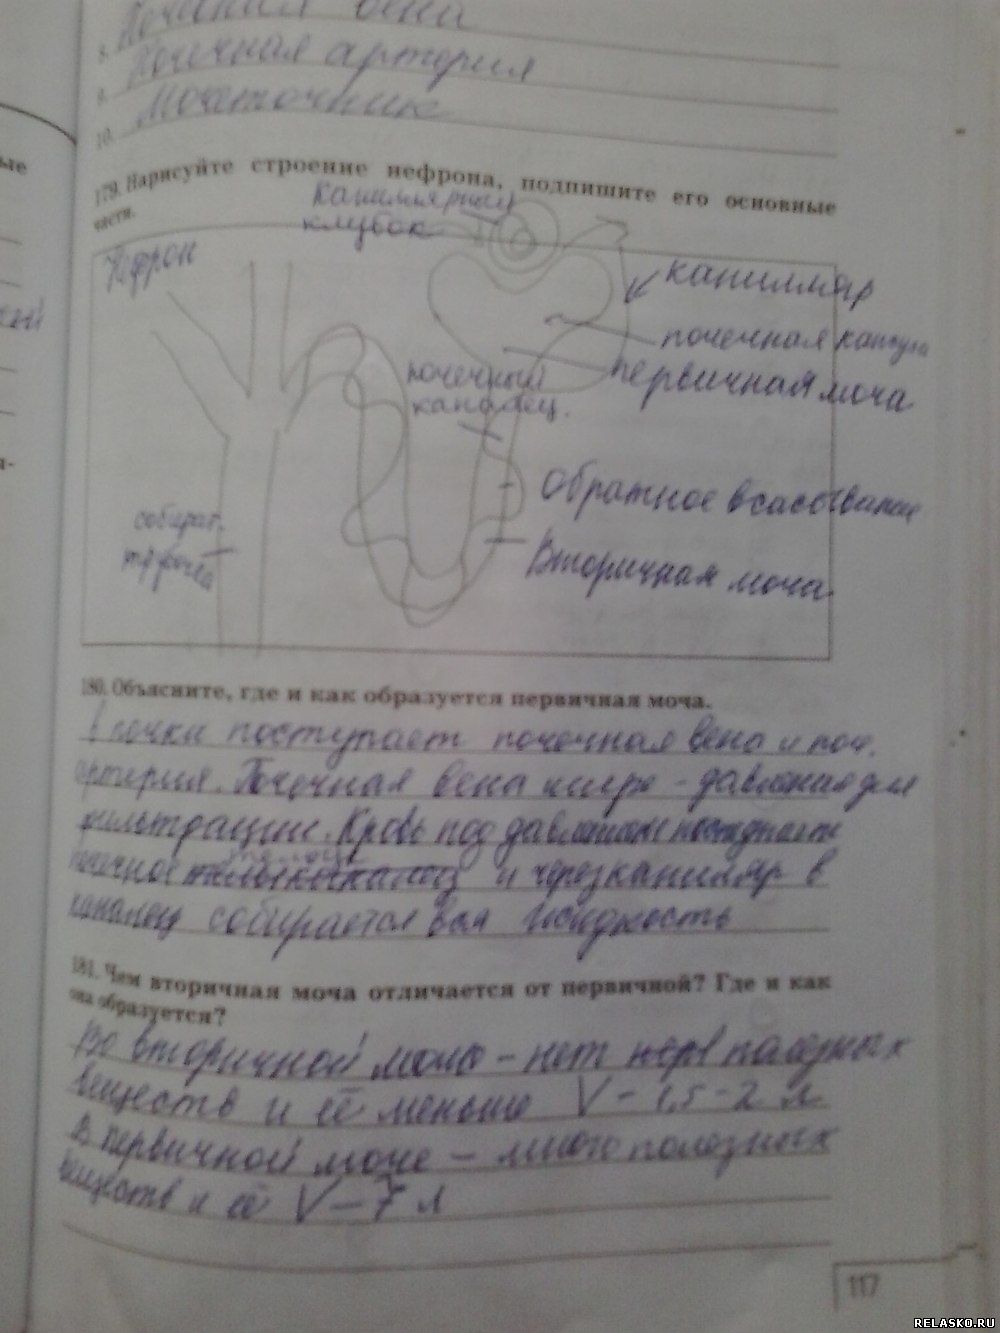 8. Почечная вена
9. Почечная артерия
10. Мочеточник
179. Нарисуйте строение нефрона, подпишите его основные
части.
капиллярный
клубок
Нефрон
капилляр
почечная капсула
первичная моча
почечный
каналец.
Обратное всасывание
Вторичная моча
собират.
трубка
180. Объясните, где и как образуется первичная моча.
В почки поступает почечная вена и поч.
артерия. Почечная вена шире - давления для
фильтрации. Кровь под давлением поступает
почечное и через капилляр в
каналец собирается вся жидкость
181. Чем вторичная моча отличается от первичной? Где и как
она образуется?
Во вторичной моче - нет полезных
веществ и её меньше V - 1,5 - 2 л
В первичной моче - много полезных
веществ и её V - 7 л
117
RELASKO.RU